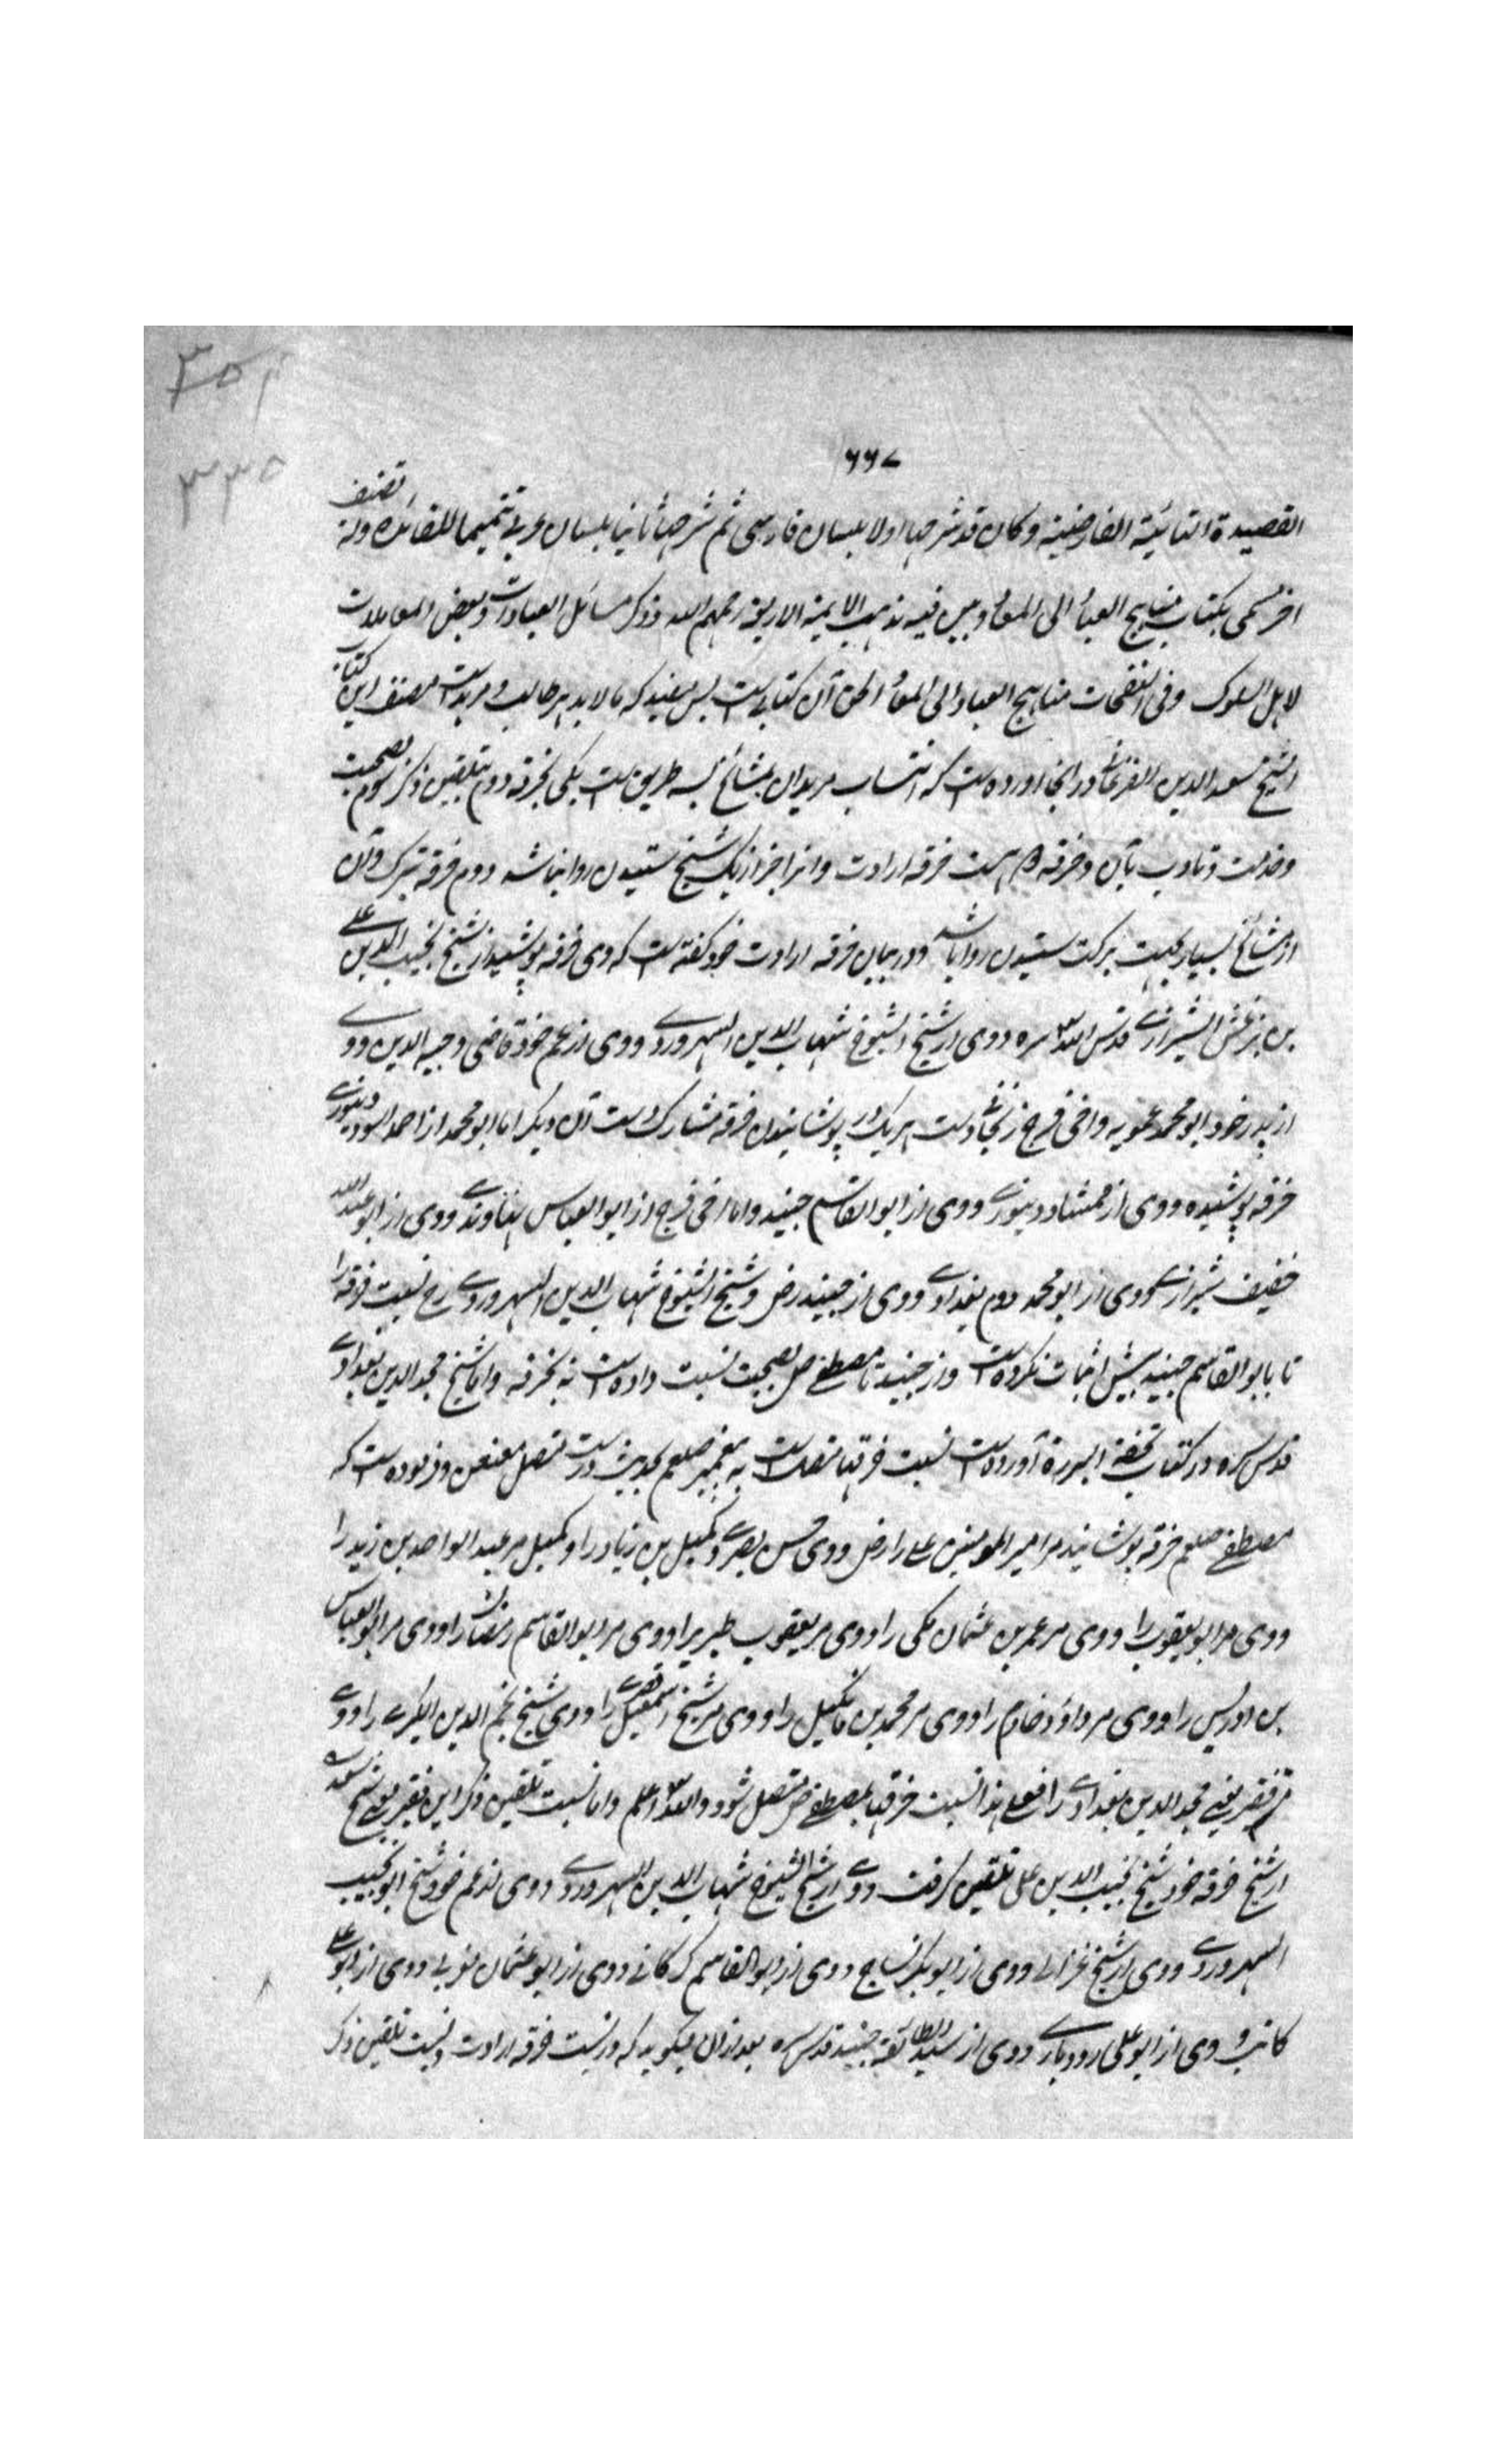 ٣٥١
٣٣٥
٦٦٧
القصیدة التائیة الفارضیة وکان قد شرحها اولا بلسان فارسی ثم شرحها ثانیا بلسان عربی تتمیما للفائدة وله تصنیف
اخر مسمی بکتاب مناهج العباد الی المعاد وبین فیه مذهب الایمة الاربعة رحمهم الله وذکر مسائل العبادات وبعض المعاملات
لاهل السلوک وفی النفحات مناهج العباد الی المعاد الحق آن کتابی ست بس مفید که مالابد هر طالب ومریدست مصنف این کتاب
الشیخ سعد الدین الفرغانی در آنجا آورده ست که انتساب مریدان بمشائخ بسه طریق ست یکی بخرقه دوم بتلقین ذکر سوم بصحبت
وخدمت وتادب بآن وخرقه دو است خرقه ارادت وانرا جز از یک شیخ ستیدن روا نباشد دوم خرقه تبرک وآن
از مشائخ بسیار بجهت برکت ستیدن روا باشد ودر بیان خرقه ارادت خود گفته ست که وی خرقه پوشید از شیخ نجیب الدین علی
بن بزغش الشیرازی قدس الله سره ووی از شیخ الشیوخ شهاب الدین السهروردی ووی از عم خود قاضی وجیه الدین ووی
از پدر خود ابو محمد عمویه واخی فرج زنجانی دست هر یک در پوشانیدن خرقه مشارک دست آن دیگر اما ابو محمد از احمد اسود دینوری
خرقه پوشیده ووی از ممشاد دینوری ووی از ابو القاسم جنید واما اخی فرج از ابو العباس نهاوندی ووی از ابو عبد الله
خفیف شیرازی ووی از ابو محمد رویم بغدادی ووی از جنید رض وشیخ الشیوخ شهاب الدین السهروردی رح نسبت خرقه را
تا بابو القاسم جنید بیش اثبات نکرده ست واز جنید تا مصطفی صلعم بصحبت نسبت داده ست نه بخرقه واما شیخ مجد الدین بغدادی
قدس سره در کتاب تحفة البررة آورده ست نسبت خرقها متصلست به پیغمبر صلعم بحدیث درست متصل معنعن وفرموده ست که
مصطفی صلعم خرقه پوشانید مر امیر المومنین علی را رض ووی حسن بصری وکمیل بن زیاد را وکمیل مر عبد الواحد بن زید را
ووی مر ابو یعقوب را ووی مر عمر بن عثمان مکی را ووی مر یعقوب طبری را ووی مر ابو القاسم رمضان را ووی مر ابو العباس
بن ادریس را ووی مر داؤد خادم را ووی مر محمد بن مانکیل را ووی مر شیخ اسمعیل قصری را ووی شیخ نجم الدین الکبری را ووی
مر فقیر یعنی مجد الدین بغدادی را فعلی هذا نسبت خرقها بمصطفی صلعم متصل شود والله اعلم واما نسبت تلقین ذکر این فقیر یعنی شیخ سعید
از شیخ خرقه خود شیخ نجیب الدین علی تلقین گرفت ووی از شیخ الشیوخ شهاب الدین السهروردی ووی از عم خود شیخ ابو نجیب
السهروردی ووی از شیخ غزالی ووی از ابو بکر نساج ووی از ابو القاسم کرکانی ووی از ابو عثمان مغربی ووی از ابو علی
کاتب ووی از ابو علی رودباری ووی از سید الطائفة جنید قدس سره بعد از ان میگوید که در نسبت خرقه ارادت ونسبت تلقین ذکر